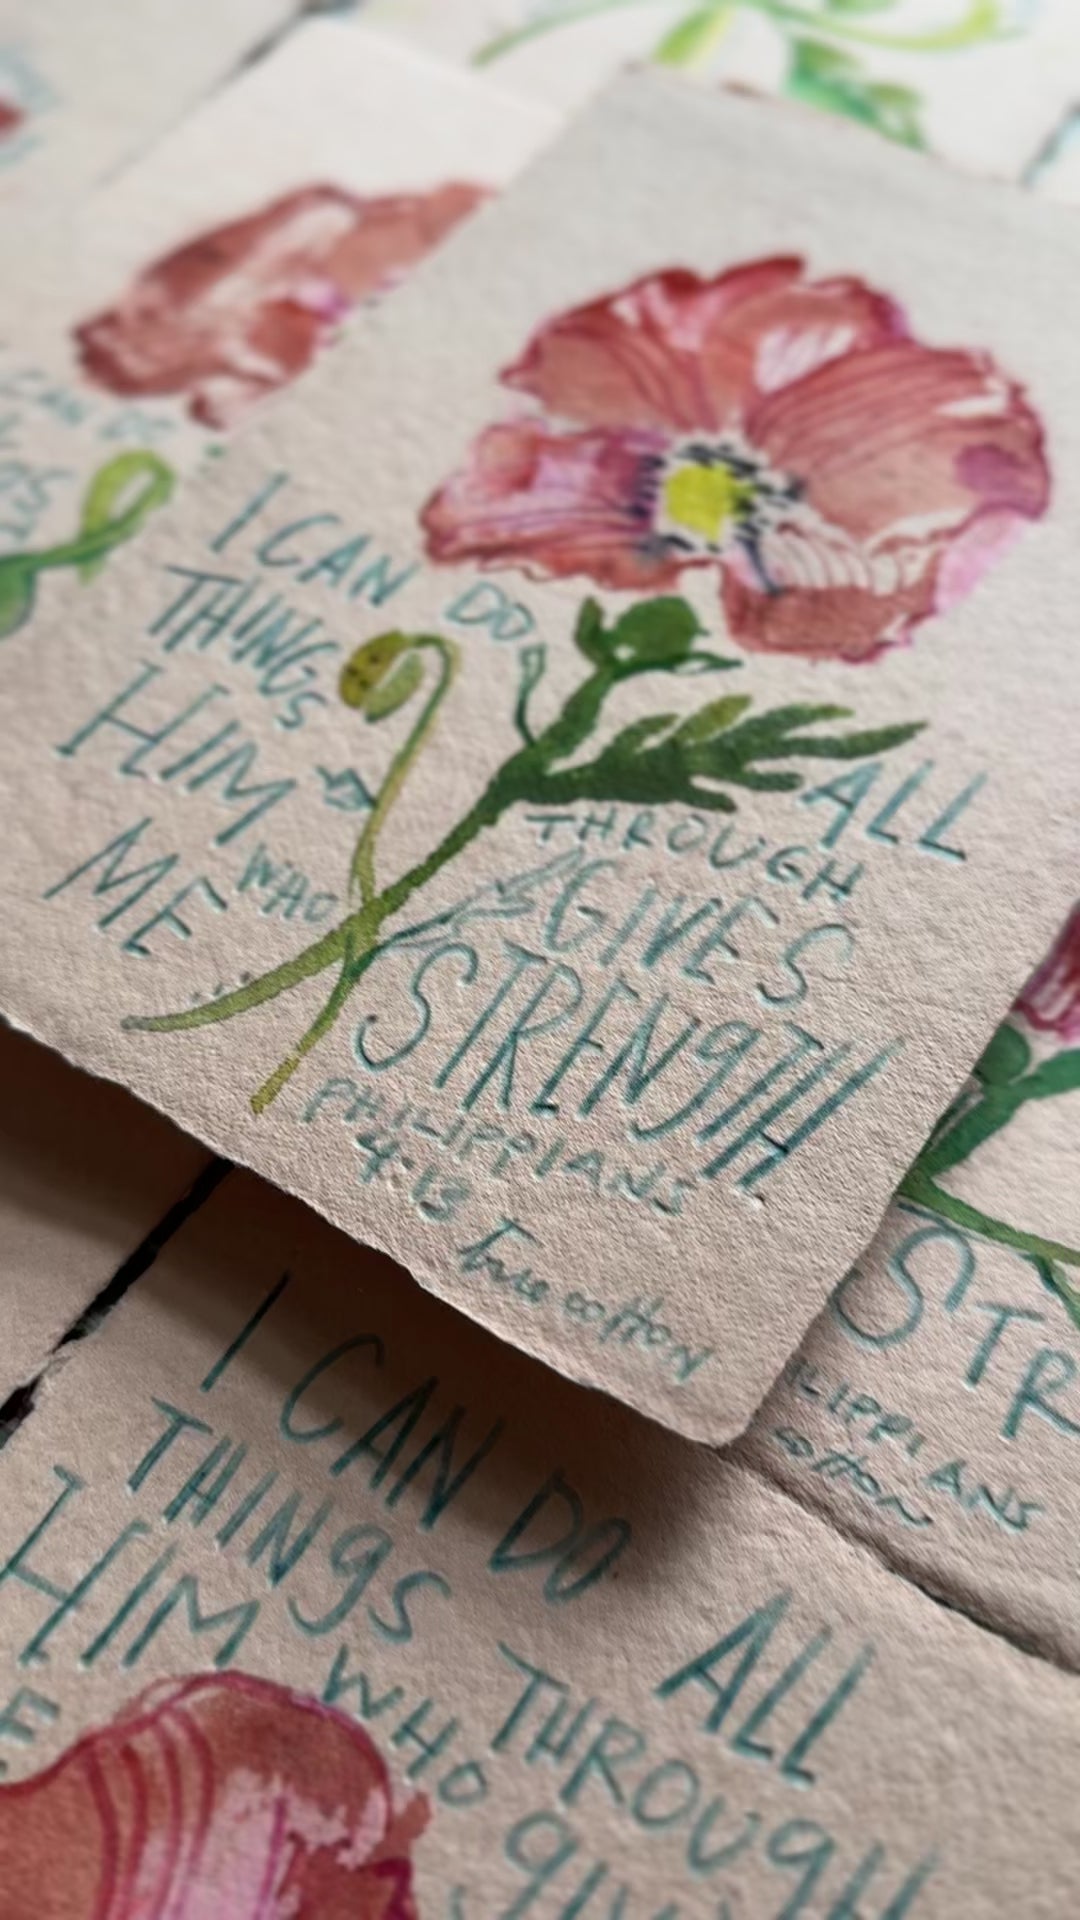 I CAN DO ALL
THINGS THROUGH
HIM WHO GIVES
ME STRENGTH
PHILIPPIANS
4:13
cotton
STR
LIPPIANS
cotton
I CAN DO ALL
THINGS THROUGH
HIM WHO